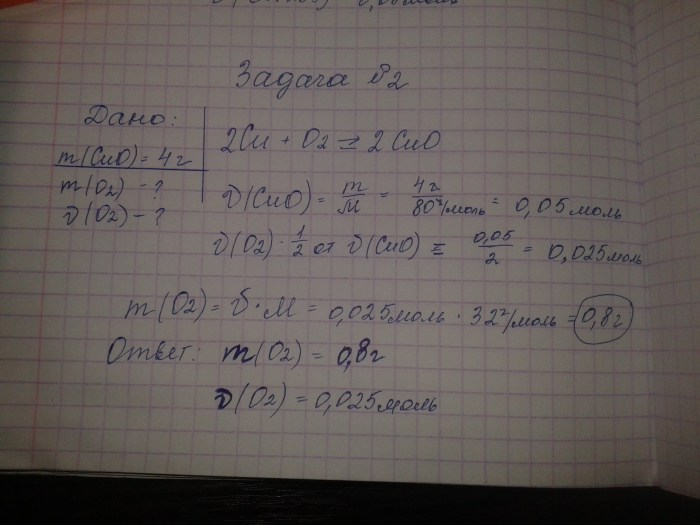 Задача №2
Дано:
m(CuO) = 4г
m(O2) - ?
ν(O2) - ?
2Cu + O2 = 2CuO
ν(CuO) = m/M = 4г/80г/моль = 0,05 моль
ν(O2) · 1/2 от ν(CuO) = 0,05/2 = 0,025 моль
m(O2) = ν · M = 0,025 моль · 32г/моль = 0,8г
Ответ: m(O2) = 0,8г
ν(O2) = 0,025 моль